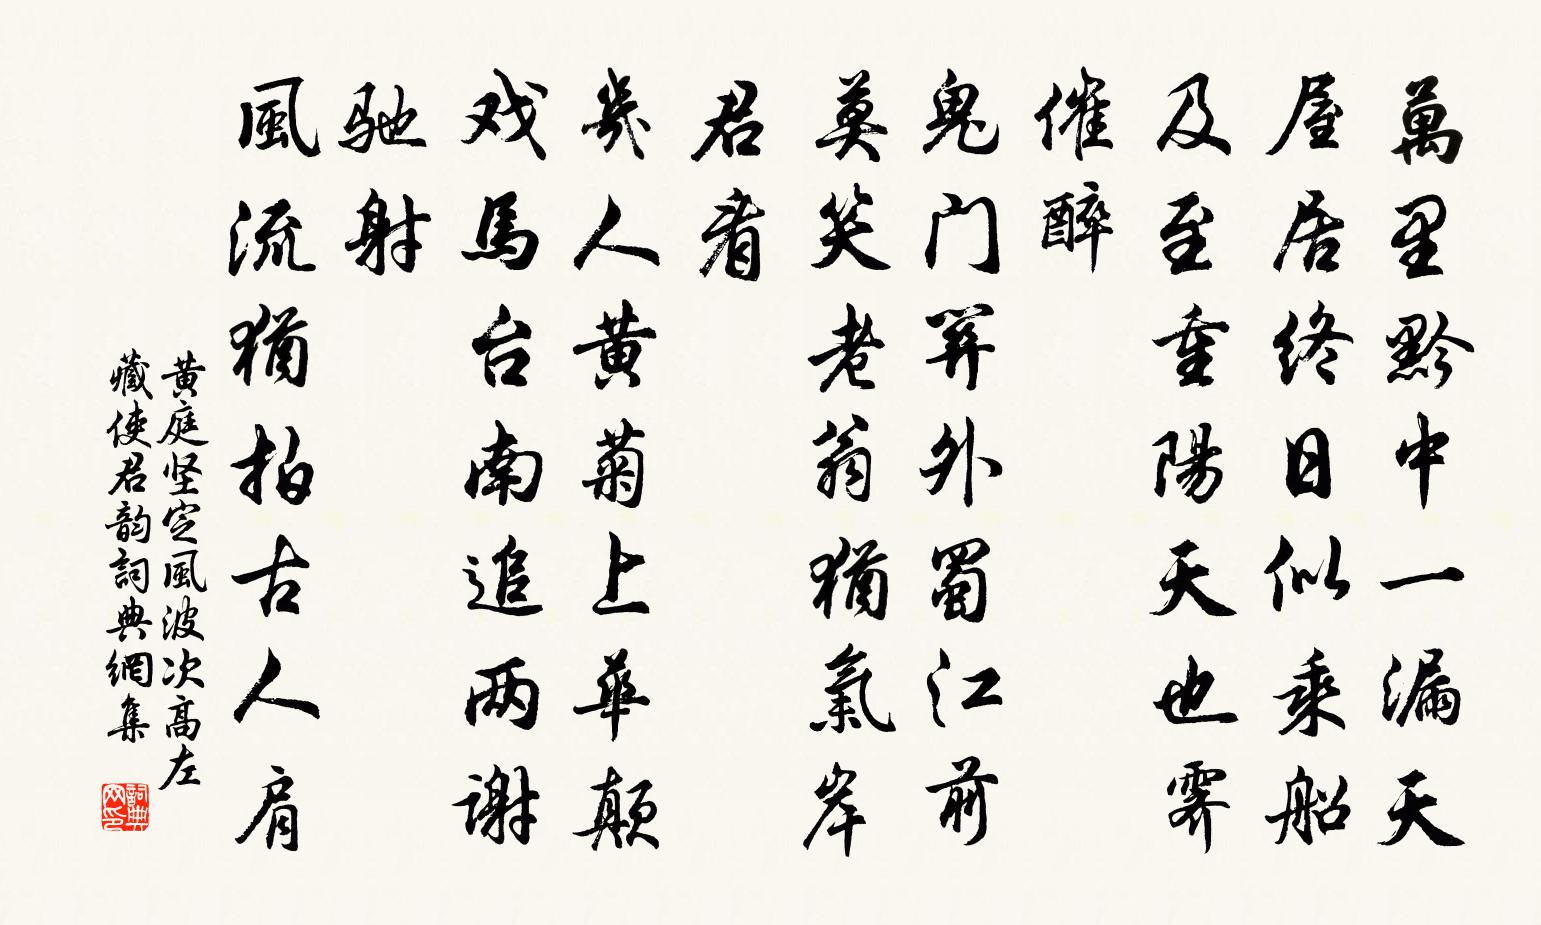 萬里黔中一漏天
屋居終日似乘船
及至重陽天也霽
催醉
鬼门関外蜀江前
莫笑老翁猶氣岸
君看
幾人黄菊上華颠
戏馬台南追两谢
驰射
風流猶拍古人肩
黄庭坚定風波次高左
藏使君韵詞典網集
詞典网印